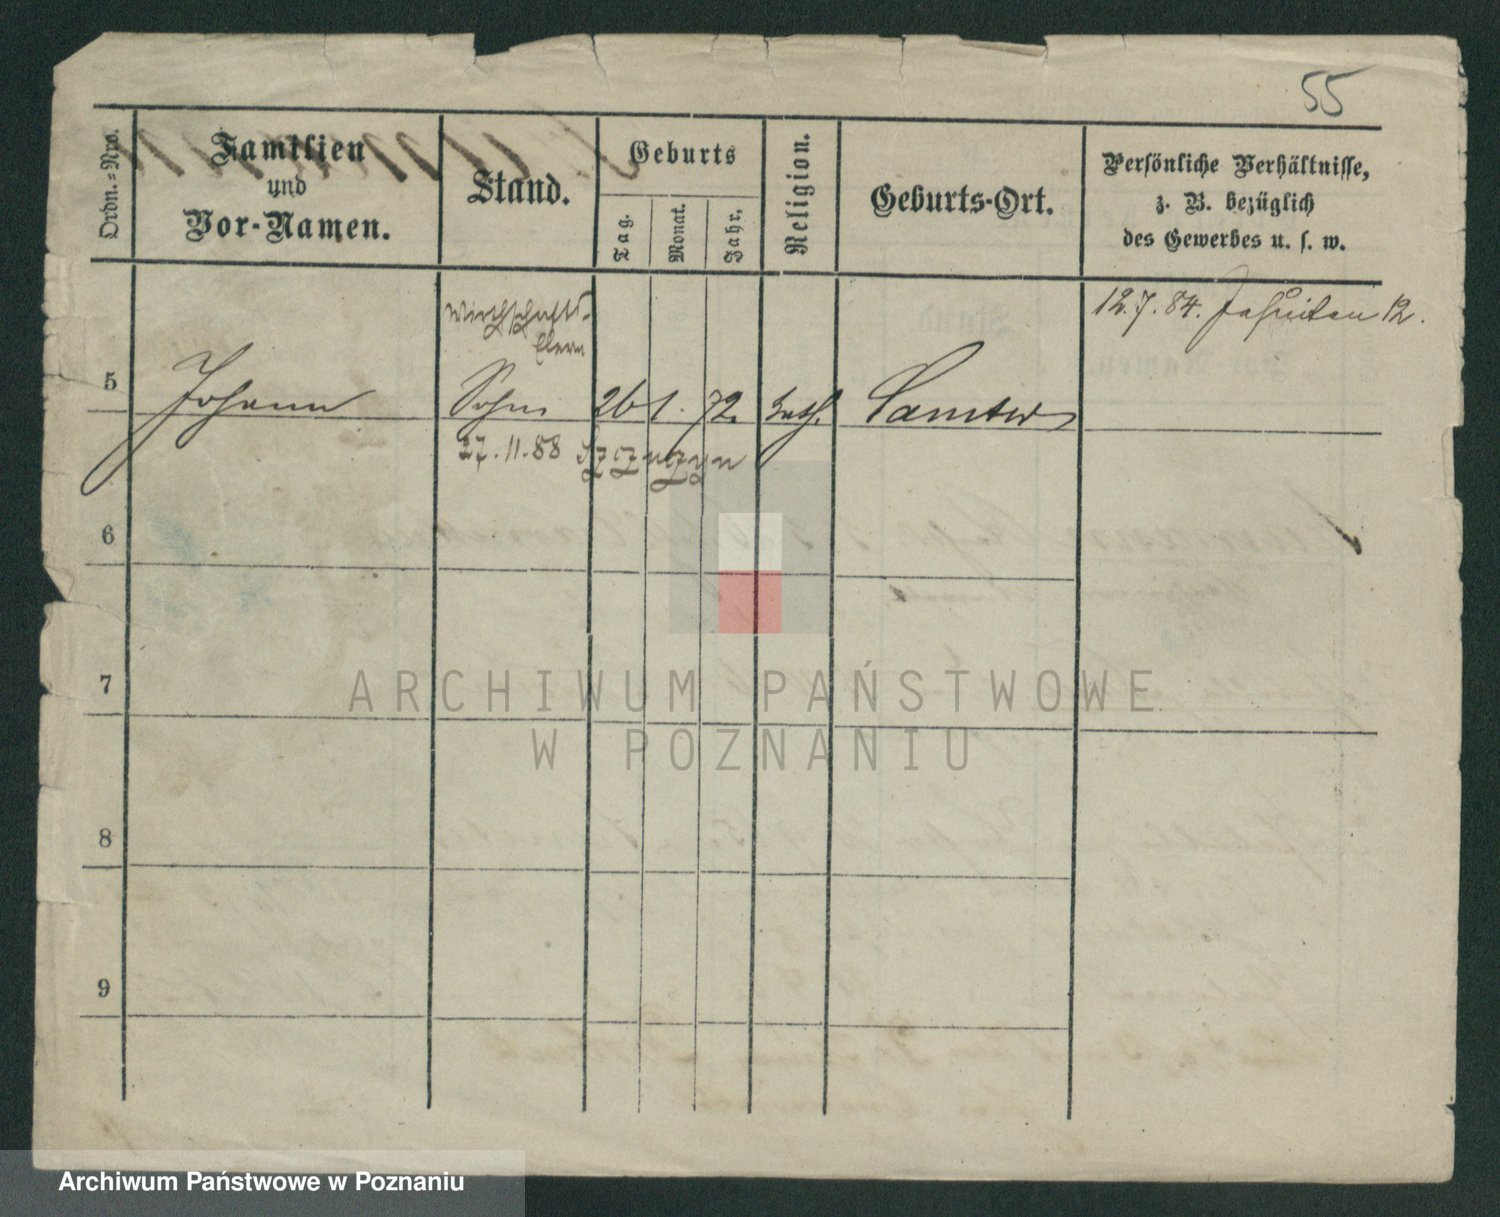 55
Ordn.=Nro.
Familien
und
Vor-Namen.
Stand.
Geburts
Tag.
Monat.
Jahr.
Religion.
Geburts-Ort.
Persönliche Verhältnisse,
z. B. bezüglich
des Gewerbes u. s. w.
Wirthschafts-
Eleve
12.7.84. Jesuiten 12.
5 Johann Sohn 26 1. 72. kath. Samter
27.11.88
6
7
ARCHIWUM PAŃSTWOWE
W POZNANIU
8
9
Archiwum Państwowe w Poznaniu